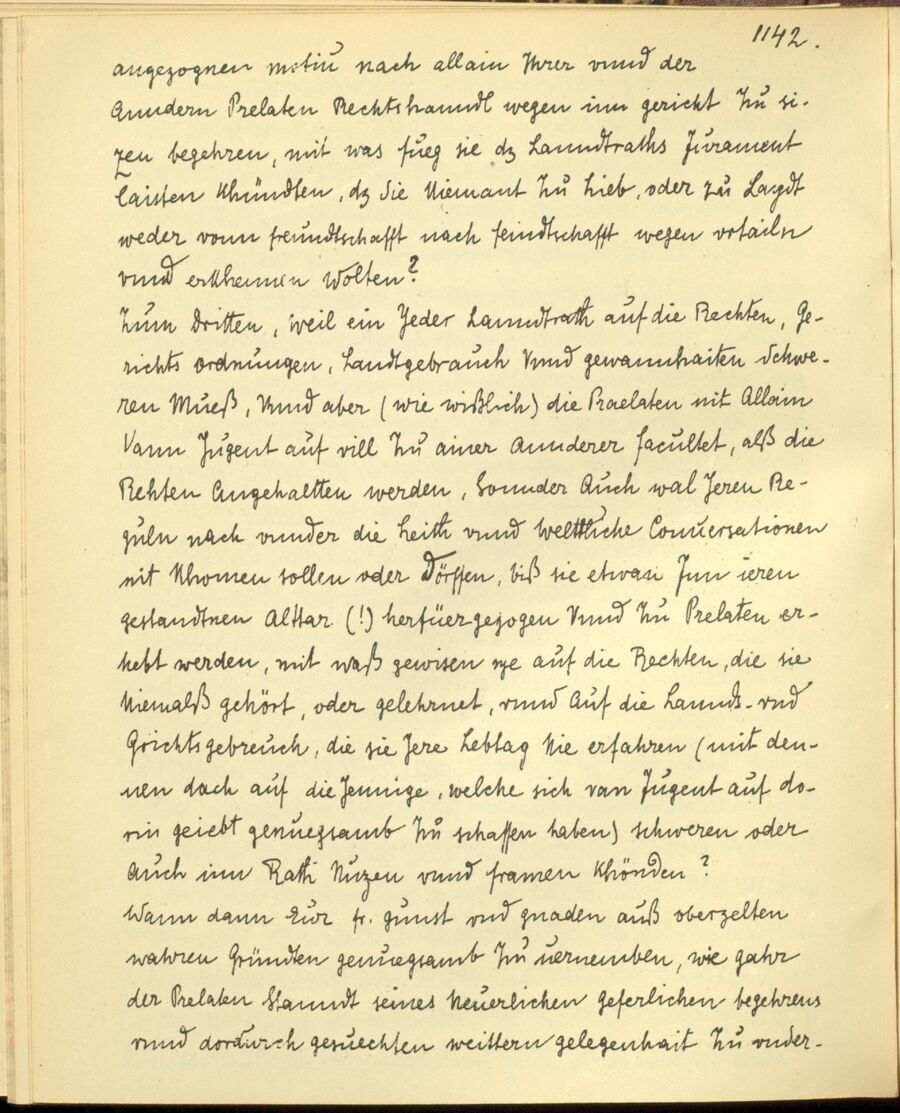 1142.
angezognen motiu nach allain Ihrer vnnd der
Anndern Prelaten Rechtshanndl wegen inn gericht Zu si-
zen begehren, mit was fueg sie dz Lanndtraths Jurament
laisten Khündten, dz Sie Niemant Zu lieb, oder zu Laydt
weder vonn freundtschafft nach feindtschafft wegen vrtailn
vnnd erkhennen Wolten?
Zum Dritten, Weil ein Yeder Lanndtrath auf die Rechten, Ge-
richts ordnungen, Landtgebrauch Vnnd gewannhaiten Schwe-
ren Mueß, Vnnd aber (wie wißlich) die Praelaten nit Allain
Vann Jugent auf vill Zu ainer Annderer facultet, alß die
Rehten Angehaltten werden, Sonnder Auch wal Jeren Re-
guln nach vnnder die Leith vnnd Welttliche Conuersationen
nit Khomen sollen oder Dörffen, biß sie etwan Jnn ieren
gestandtnen Alttar (!) herfüergezogen Vnnd Zu Prelaten er-
hebt werden, mit waß gewisen sye auf die Rechten, die sie
Niemalß gehört, oder gelehrnet, vnnd Auf die Lannds- vnd
Grichtsgebreuch, die sie Jere Lebtag Nie erfahren (mit den-
nen doch auf die Jennige, welche sich van Jugent auf do-
rin geiebt genuegsamb Zu schaffen haben) schweren oder
Auch inn Rath Nuzen vnnd framen Khönden?
Wann dann Eur fr. gunst vnd gnaden auß oberzelten
wahren Gründten genuegsamb Zu uernemben, wie gahr
der Prelaten Stanndt seines Neuerlichen geferlichen begehrens
vnnd dordurch gesuechten weittern gelegenhait Zu vnder-